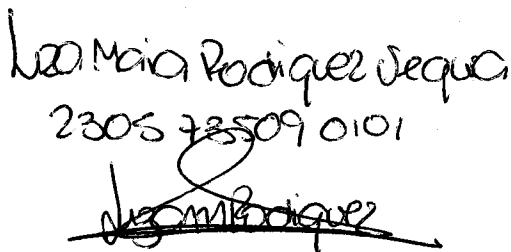 Liza Maria Rodriquez Sequra
2305 73509 0101
LizaMRodriquez